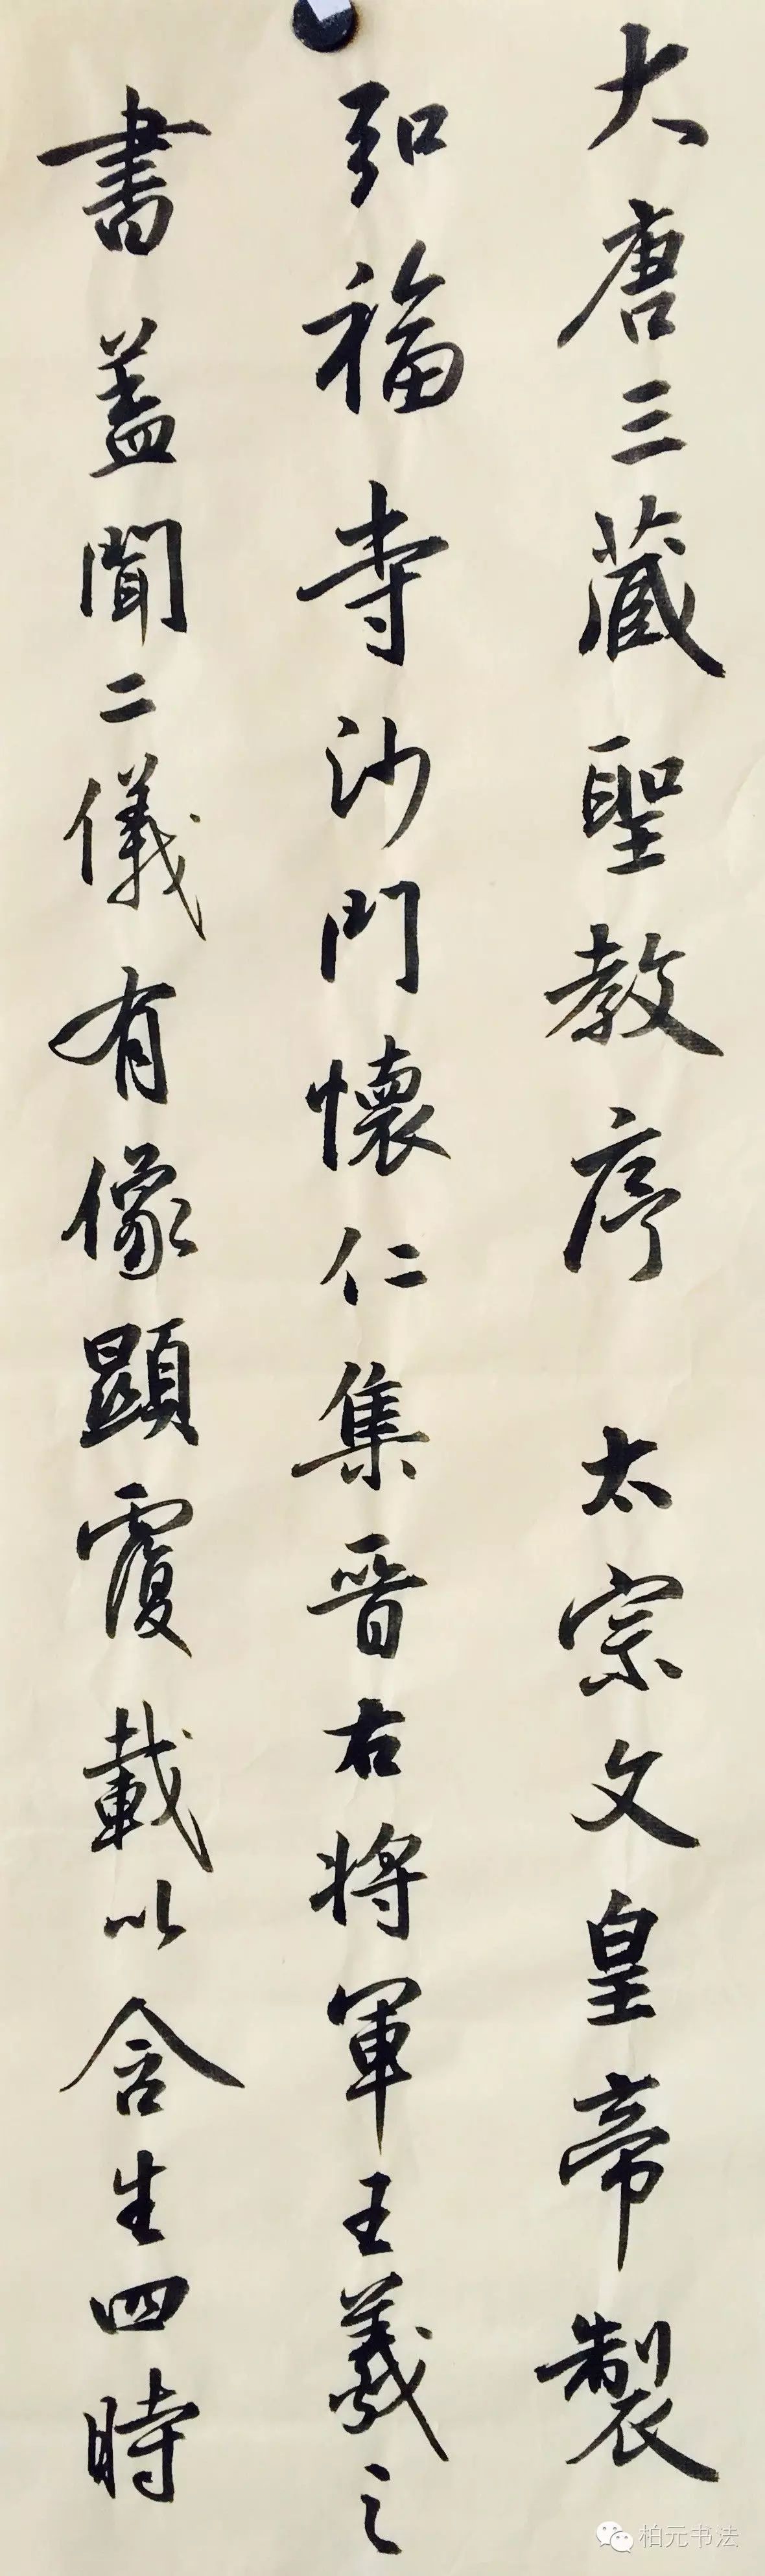 大唐三藏聖教序 太宗文皇帝製
弘福寺沙門懷仁集晉右將軍王羲之
書蓋聞二儀有像顯覆載以含生四時
柏元书法